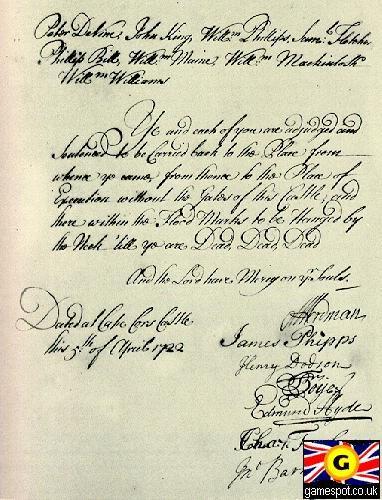 Peter Devine, John King, Willm Phillips, Saml Fletcher
Phillip Bill, Willm Maine, Willm Mackintosh
Willm Williams
Ye and each of you are adjudged and
Sentenced to be Carried back to the Place from
whence ye came, from thence to the Place of
Execution without the Gates of this Castle, and
there within the Flood Marks to be Hanged by
the Neck till ye are Dead, Dead, Dead
And the Lord have Mercy on yr Souls.
Dated at Cape Cors Castle
this 5th of April 1722
Hrdman
James Phipps
Henry Dodson
Boye
Edmund Hyde
Jno Bar
G
gamespot.co.uk